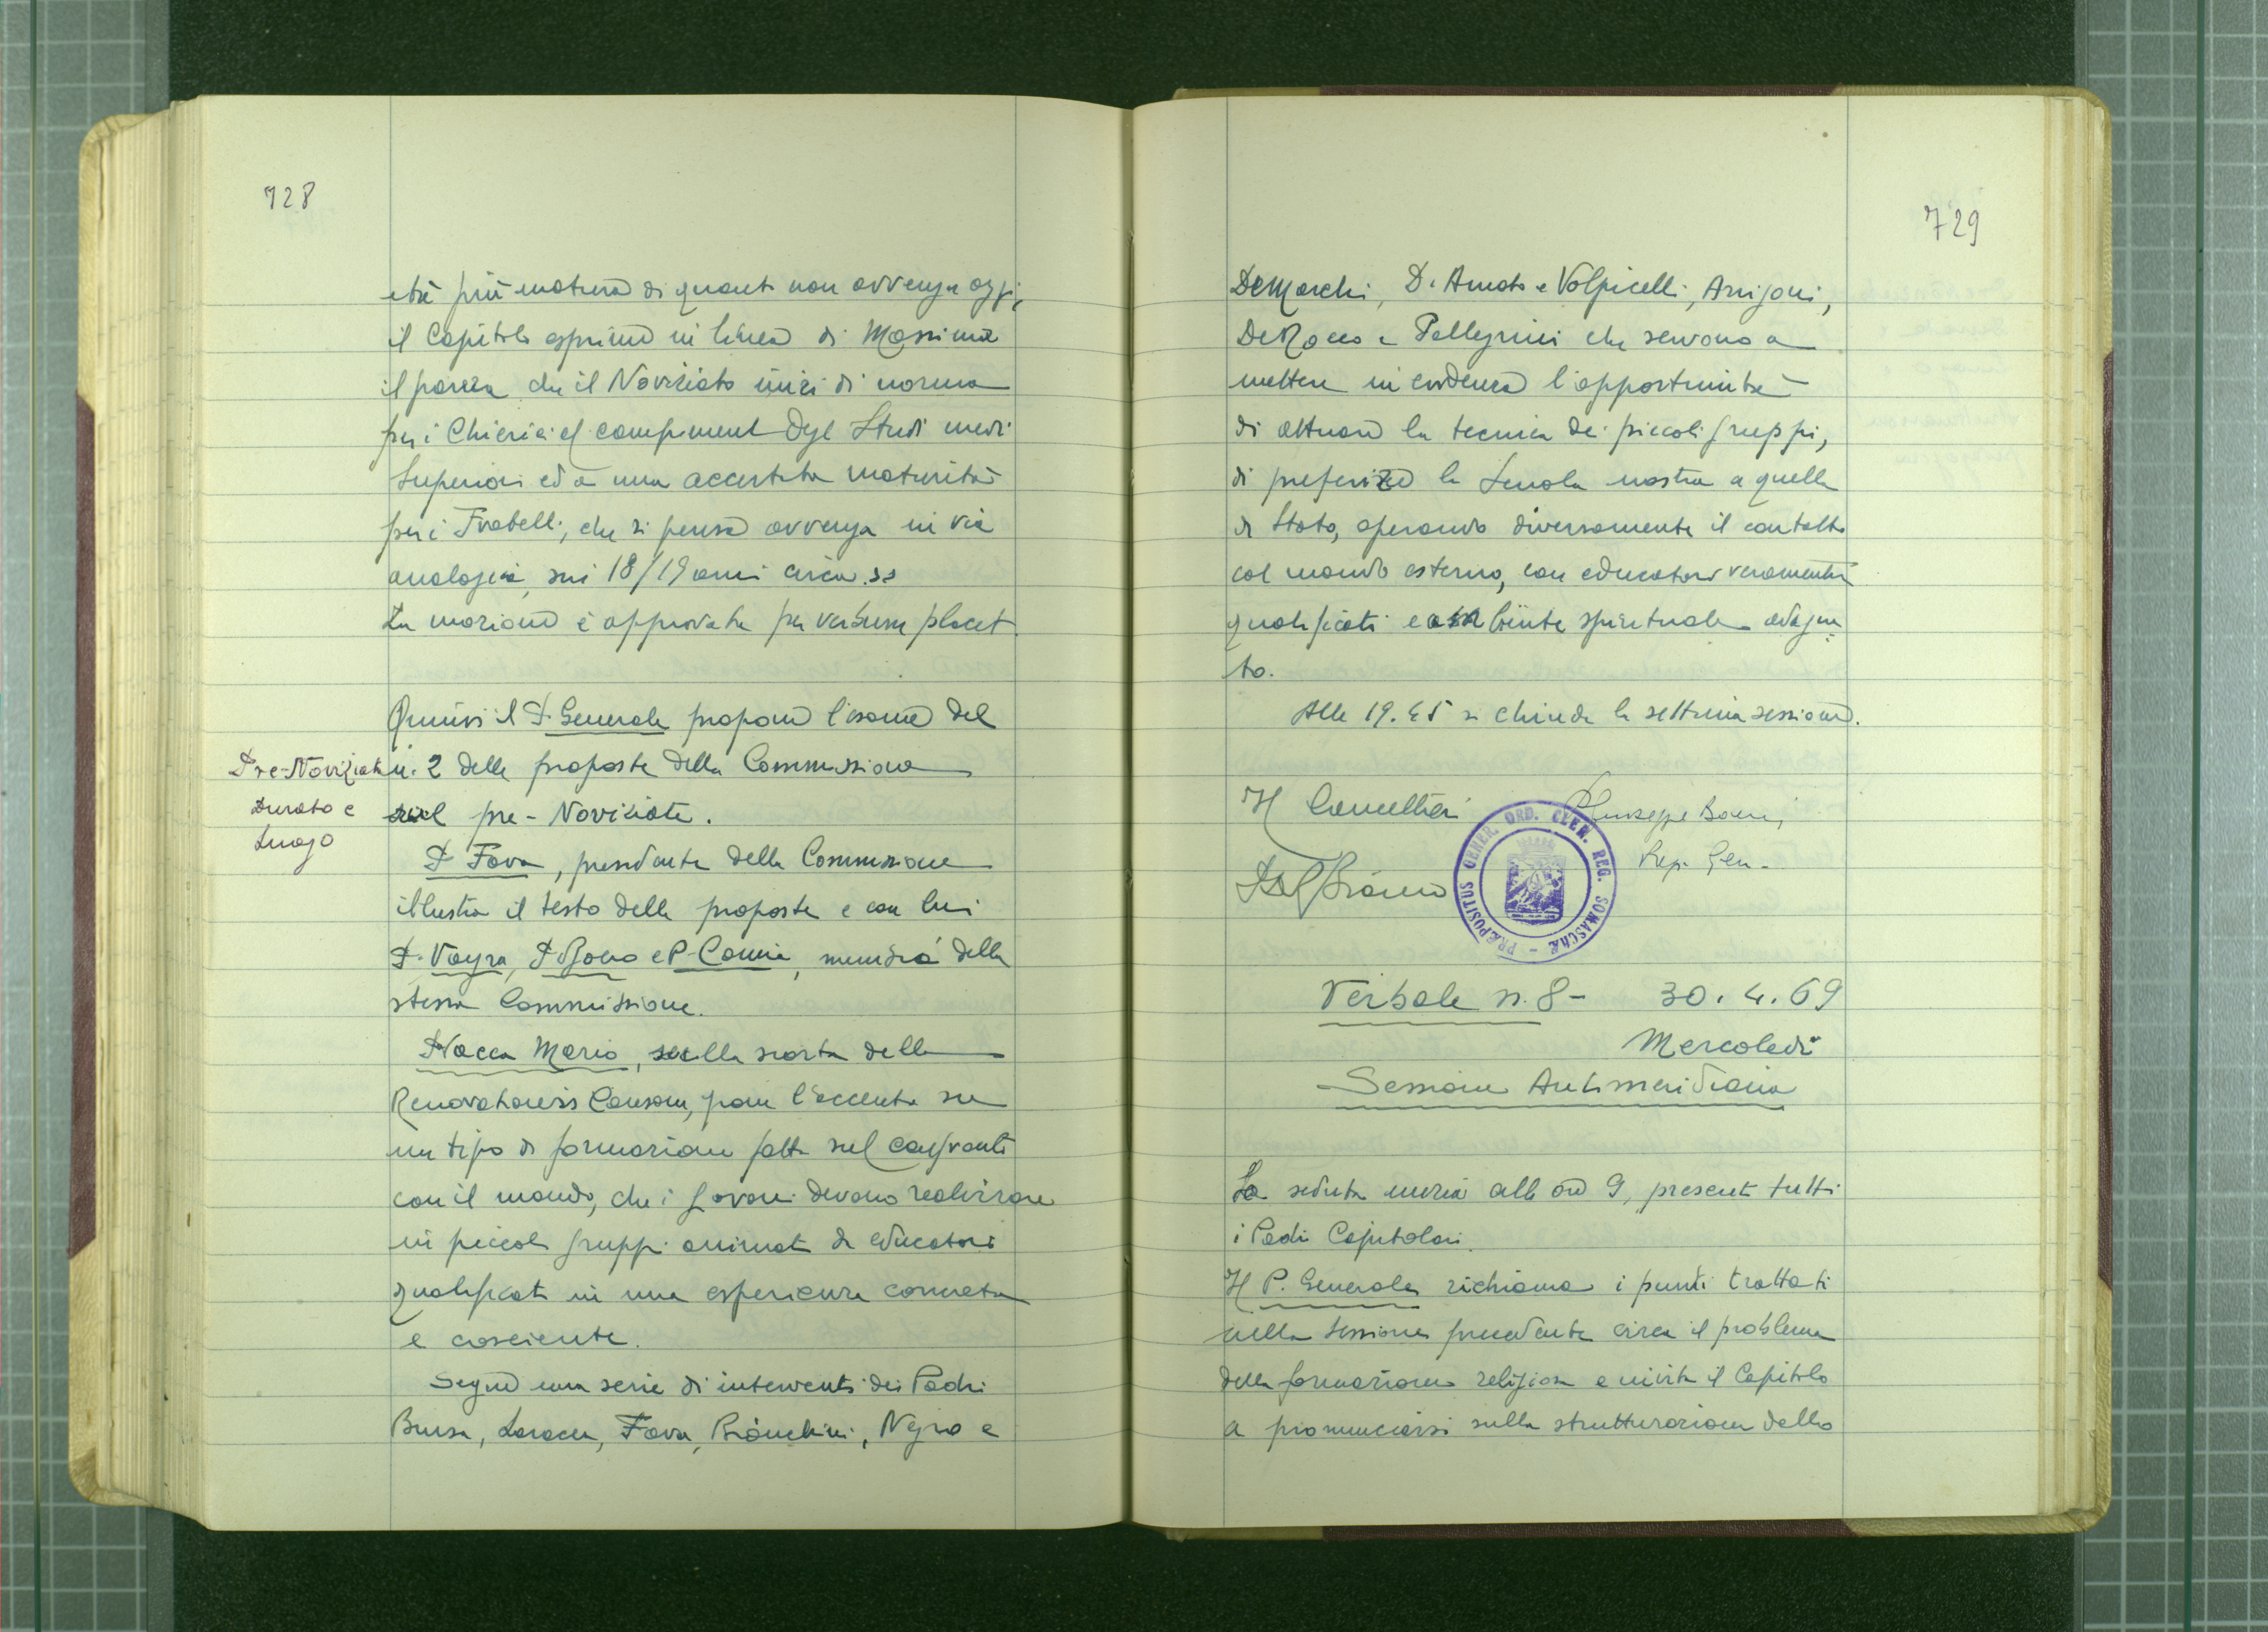 728
età più matura di quanto non avvenga oggi,
il Capitolo esprime in linea di Massima
il parere che il Noviziato inizi di norma
per i Chierici al compimento degli Studi medi
Superiori ed a una accertata maturità
per i Fratelli, che si pensa avvenga in via
analogica, sui 18/19 anni circa. »
La mozione è approvata per verbum placet.
Quindi il P. Generale propone l'esame del
Pre-Noviziato
n. 2 delle proposte della Commissione
Durata e
sul pre-Noviziato.
Luogo
P. Fava, presidente della Commissione
illustra il testo delle proposte e con lui
P. Vayra, P. Bono e P. Camia, membri della
stessa Commissione.
P. Vacca Mario, sulla scorta della
Renovationis Causam, pone l'accento su
un tipo di formazione fatta nel confronto
con il mondo, che i giovani devono realizzare
in piccoli gruppi animati da educatori
qualificati in una esperienza concreta
e cosciente.
Segue una serie di interventi dei Padri
Brusa, Laracca, Fava, Bianchini, Negro e
729
DeMarchi, D'Amato e Volpicelli, Arrigoni,
DeRocco e Pellegrini che servono a
mettere in evidenza l'opportunità
di attuare la tecnica dei piccoli gruppi,
di preferire la Scuola nostra a quella
di Stato, operando diversamente il contatto
col mondo esterno, con educatori veramente
qualificati e ambiente spirituale adegua
to.
Alle 19.45 si chiude la settima sessione.
Il Cancelliere
Giuseppe Boeris,
Prep. Gen.
PRÆPOSITUS GENER. ORD. CLER. REG. SOMASCHÆ
Verbale n. 8 - 30.4.69
Mercoledì
Sessione Antimeridiana
La seduta inizia alle ore 9, presenti tutti
i Padri Capitolari.
Il P. Generale richiama i punti trattati
nella sessione precedente circa il problema
della formazione religiosa e invita il Capitolo
a pronunciarsi sulla strutturazione dello